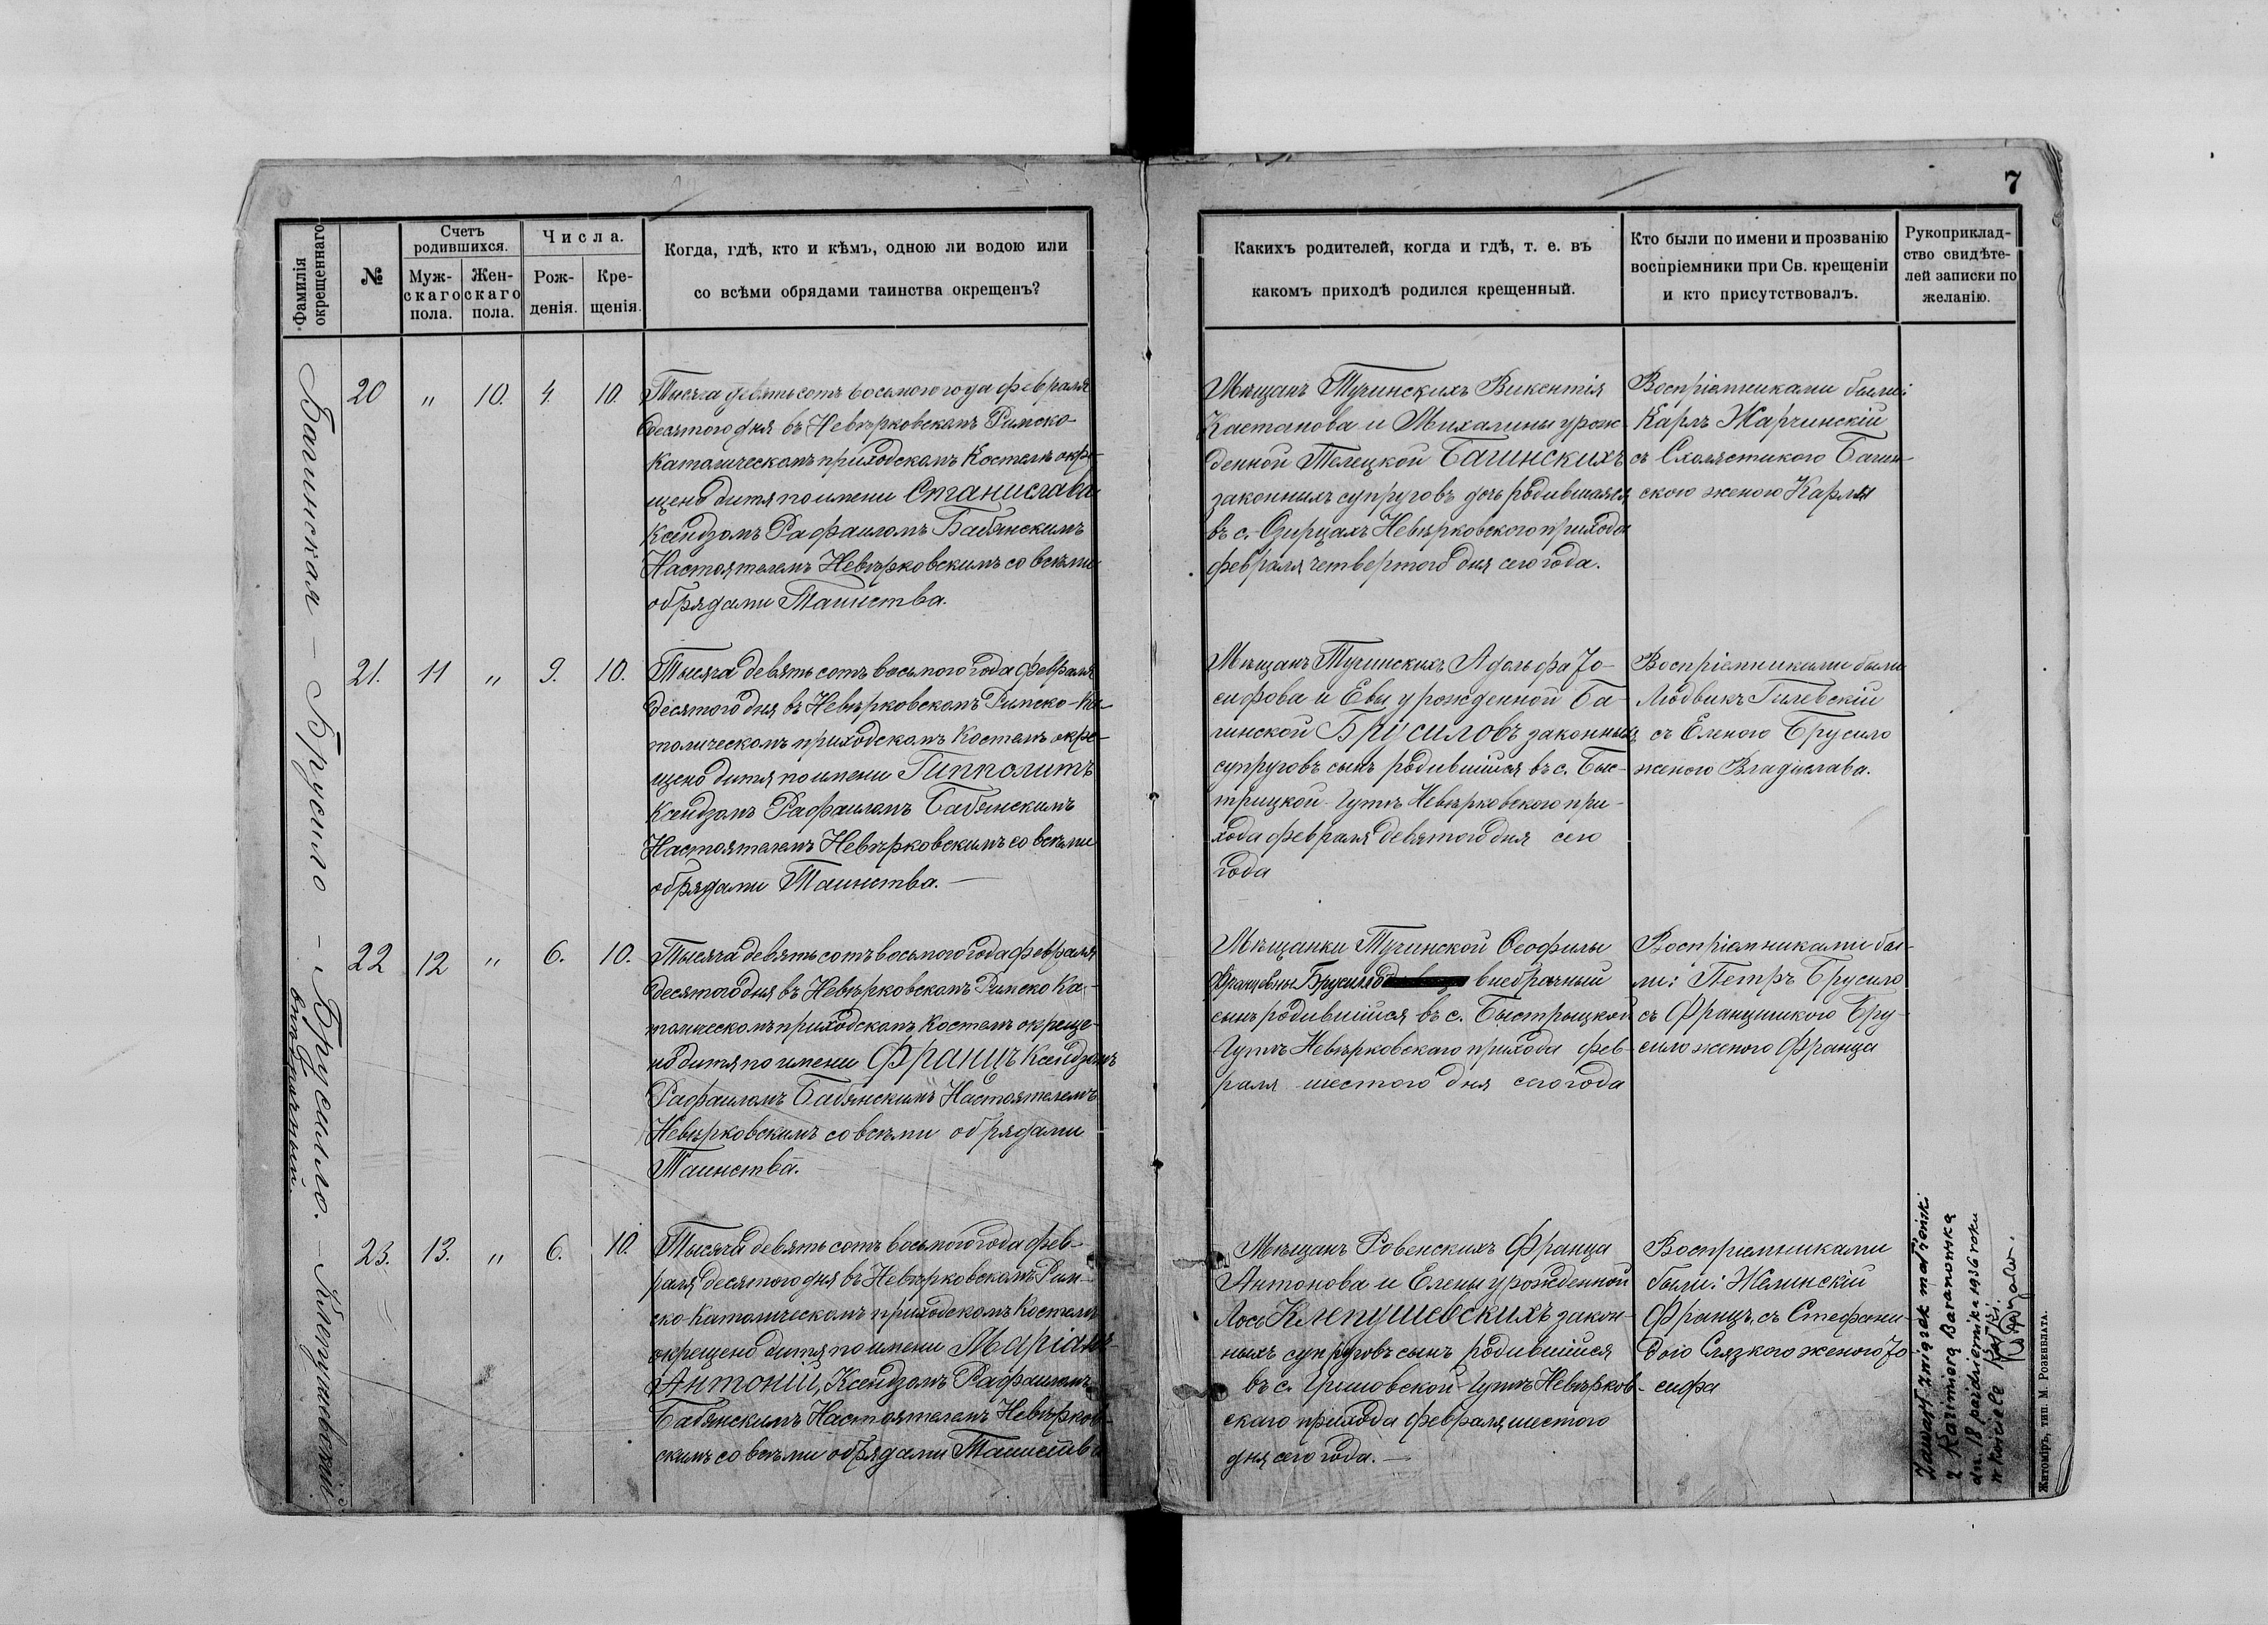 7
Фамилія окрещеннаго
№
Счетъ родившихся.
Муж-скаго пола.
Жен-скаго пола.
Числа.
Рож-денія.
Кре-щенія.
Когда, гдѣ, кто и кѣмъ, одною ли водою или
со всѣми обрядами таинства окрещенъ?
Какихъ родителей, когда и гдѣ, т. е. въ
какомъ приходѣ родился крещенный.
Кто были по имени и прозванію
воспріемники при Св. крещеніи
и кто присутствовалъ.
Рукоприклад-
ство свидѣте-
лей записки по
желанію.
Багинская – Брусило – Брусило. – Клепушевскій
внебрачный.
20 " 10. 4. 10.
Тысяча девятьсотъ восьмого года февраля
десятого дня въ Невѣрковскомъ Римско-
Католическомъ приходскомъ Костелѣ окре-
щено дитя по имени Станислава
Ксендзомъ Рафаиломъ Бабянскимъ
Настоятелемъ Невѣрковскимъ со всѣми
обрядами Таинства.
Мѣщанъ Тучинскихъ Викентія
Каетанова и Михалины урож-
денной Телецкой Багинскихъ
законныхъ супруговъ дочь родившаяся
въ с. Озирцахъ Невѣрковского прихода
февраля четвертого дня сего года.
Воспріемниками были:
Карлъ Жарчинскій
съ Схолястикою Багин-
скою женою Карла
21. 11 " 9. 10.
Тысяча девятьсотъ восьмого года февраля
десятого дня въ Невѣрковскомъ Римско-Ка-
толическомъ приходскомъ Костелѣ окре-
щено дитя по имени Гипполитъ
Ксендзомъ Рафаиломъ Бабянскимъ
Настоятелемъ Невѣрковскимъ со всѣми
обрядами Таинства. —
Мѣщанъ Тучинскихъ Адольфа Іо-
сифова и Евы урожденной Ба-
гинской Брусиловъ законныхъ
супруговъ сынъ родившійся въ с. Быс-
трицкой-Гутѣ Невѣрковского при-
хода февраля девятого дня сего
года
Воспріемниками были
Людвикъ Гилевскій
съ Еленою Брусило
женою Владислава.
22 12 " 6. 10.
Тысяча девятьсотъ восьмого года февраля
десятого дня въ Невѣрковскомъ Римско Ка-
толическомъ приходскомъ Костелѣ окреще-
но дитя по имени Францъ Ксендзомъ
Рафаиломъ Бабянскимъ Настоятелемъ
Невѣрковскимъ со всѣми обрядами
Таинства.
Мѣщанки Тучинской Ѳеофилы
Францевны Брусило внебрачный
сынъ родившійся въ с. Быстрыцкой
Гутѣ Невѣрковскаго прихода фев-
раля шестого дня сего года
Воспріемниками бы-
ли: Петръ Брусило
съ Францишкою Бру-
сило женою Франца
23. 13. " 6. 10.
Тысяча девятьсотъ восьмого года фев-
раля десятого дня въ Невѣрковскомъ Рим-
ско-Католическомъ приходскомъ Костелѣ
окрещено дитя по имени Маріанъ-
Антоній, Ксендзомъ Рафаиломъ
Бабянскимъ Настоятелемъ Невѣрков-
скимъ со всѣми обрядами Таинства
Мѣщанъ Ровенскихъ Франца
Антонова и Елены урожденной
Лось Клепушевскихъ закон-
ныхъ супруговъ сынъ родившійся
въ с. Гришовской-Гутѣ Невѣрков-
скаго прихода февраля шестого
дня сего года. —
Воспріемниками
были: Желинскій
Францъ, съ Стефани-
дою Слязкою женою Іо-
сифа
Zawarł związek małżeński
z Kazimierą Baranowską
dn. 18 października 1936 roku
w kościele
Житоміръ, тип. М. Розенблата.